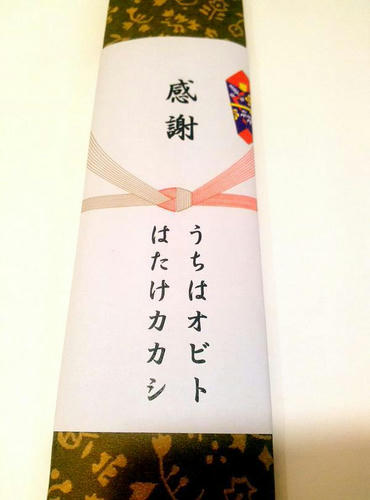 感謝
うちはオビト
はたけカカシ